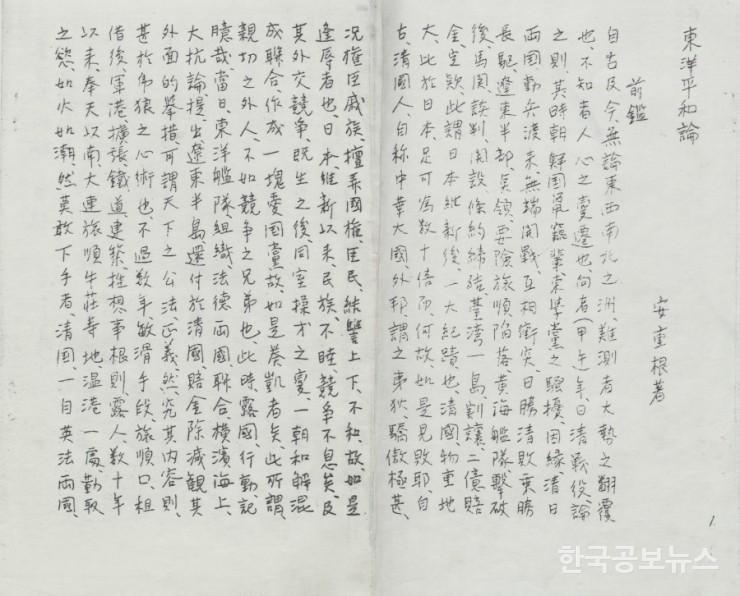 東洋平和論
安重根著
前鑑
自古及今無論東西南北之洲難測者大勢之翻覆
也、不知者人心之變遷也、向者(甲午)年日清戰役、論
之則、其時朝鮮国鼠竊輩、東學黨之騷擾、因緣清日
両国動兵渡来、無端開戰、互相衝突、日勝清敗、乗勝
長驅、遼東半部、占領、要險旅順陷落、黄海艦隊擊破
後、馬関談判、開設、條約締結、臺湾一島、割讓、二億賠
金定款、此謂日本維新後、一大紀蹟也、清國物重地
大、比於日本、足可為数十倍而何故、如是見敗耶、自
古、清國人、自称中華大國、外邦、謂之夷狄、驕傲極甚、
况權臣戚族、擅弄國權、臣民、結讐上下、不和、故、如是
逢辱者也、日本維新以来、民族、不睦、競争不息矣、及
其外交競争、既生之後、同室操才之変、一朝和解、混
成聯合、作成一塊愛国黨、故、如是奏凱者矣、此所謂
親切之外人、不如競争之兄弟也、此時露國、行動、記
臆哉、當日、東洋艦隊、組織、法德両國、聯合、横濱海上、
大抗論提出、遼東半島、還付於清國、賠金除減、観其
外面的舉措、可謂天下之公法正義、然究其内容則、
甚於虎狼之心術也、不過数年、敏滑手段、旅順口、租
借後、軍港、擴張、鐵道、建築、推想、事根則、露人、数十年
以来、奉天以南大連旅順牛荘等地、温港一處、勒取
之慾、如火如潮、然莫敢下手者、清国、一自英法両國、
1
한국공보뉴스